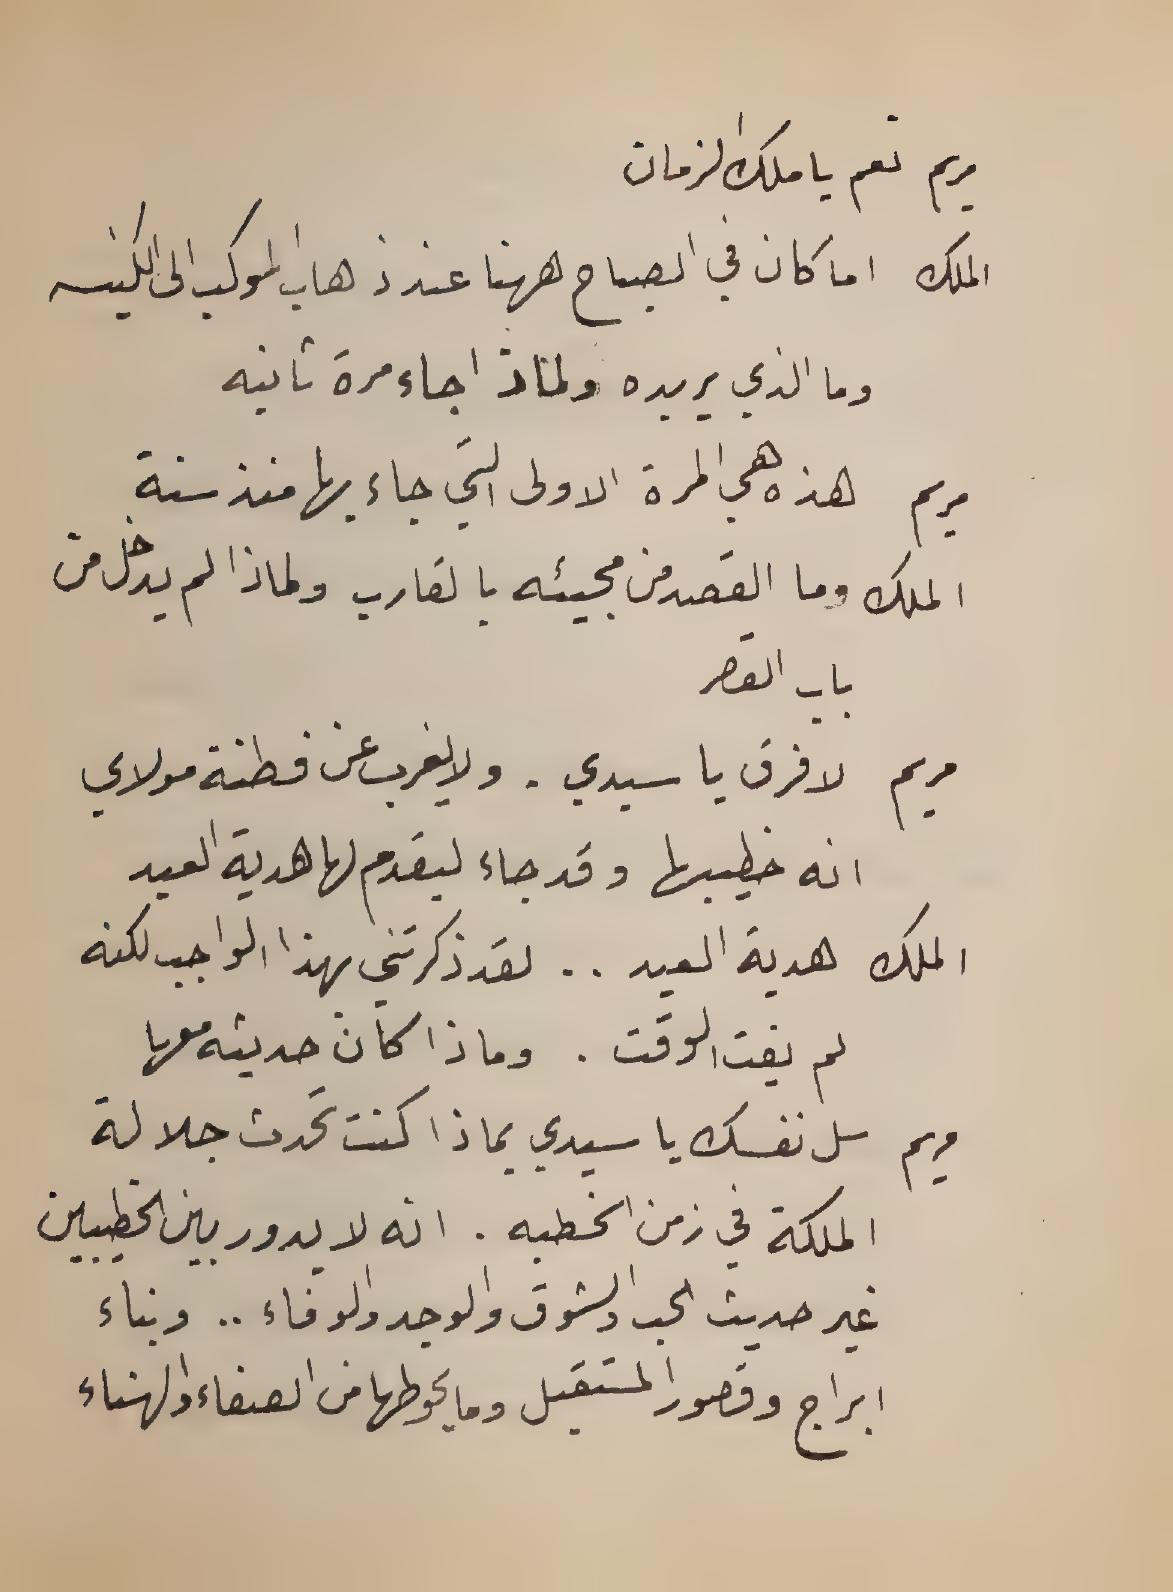 مريم نعم يا ملك الزمان
الملك اما كان في الصباح ههنا عند ذهاب الموكب الى الكنيسه
وما الذي يريده ولماذا جاء مرة ثانيه
مريم هذه هي المرة الاولى التي جاء بها منذ سنة
الملك وما القصد من مجيئه بالقارب ولماذا لم يدخل من
باب القصر
مريم لا فرق يا سيدي . ولا يغرب عن فطنة مولاي
انه خطيبها وقد جاء ليقدم لها هدية العيد
الملك هدية العيد .. لقد ذكرتني بهذا الواجب لكنه
لم يفت الوقت . وماذا كان حديثه معها
مريم سل نفسك يا سيدي بماذا كنت تحدث جلالة
الملكة في زمن الخطبه . انه لا يدور بين الخطيبين
غير حديث الحب والشوق والوجد والوفاء .. وبناء
ابراج وقصور المستقبل وما يحوطها من الصفاء والهناء